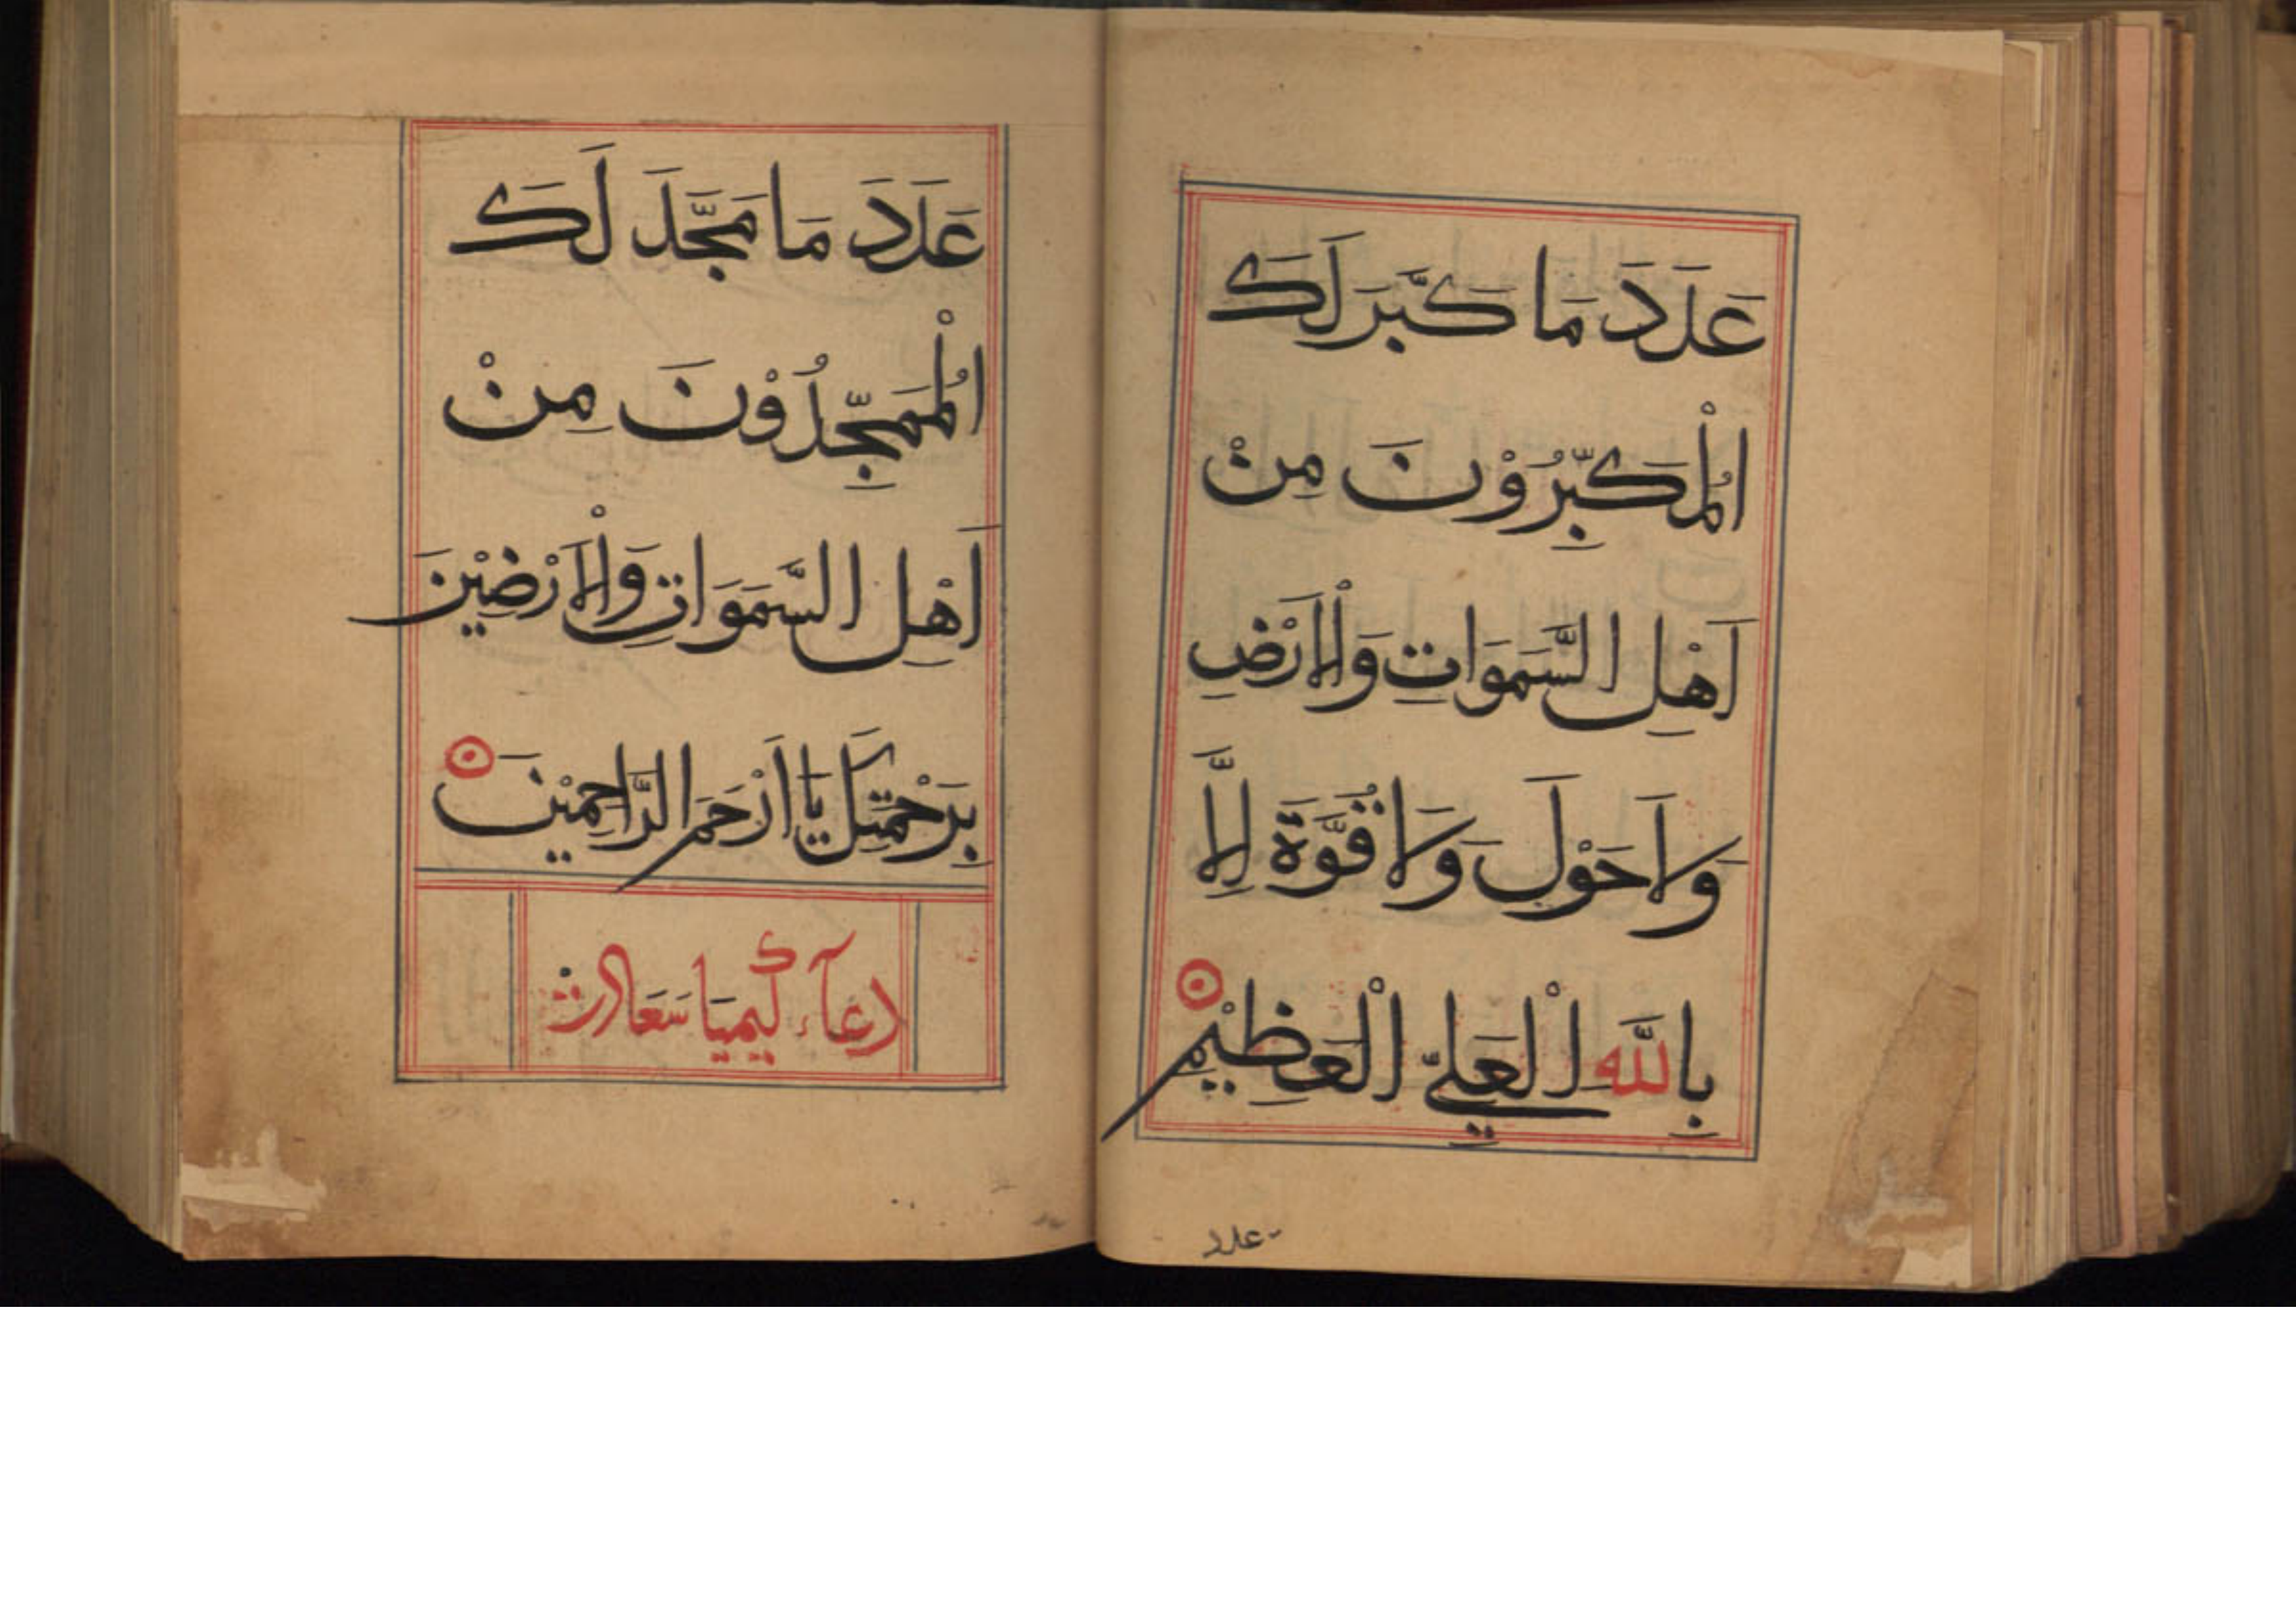 عَدَدَ مَا كَبَّرَ لَكَ
الْمُكَبِّرُوْنَ مِنْ
اَهْلِ السَّمَوَاتِ وَالْاَرْضِ
وَلَا حَوْلَ وَلَا قُوَّةَ اِلَّا
بِاللّٰهِ الْعَلِيِّ الْعَظِيْمِ
عدد
عَدَدَ مَا مَجَّدَ لَكَ
الْمُمَجِّدُوْنَ مِنْ
اَهْلِ السَّمَوَاتِ وَالْاَرْضِيْنَ
بِرَحْمَتِكَ يَا اَرْحَمَ الرَّاحِمِيْنَ
دعآء كيميا سَعَادت